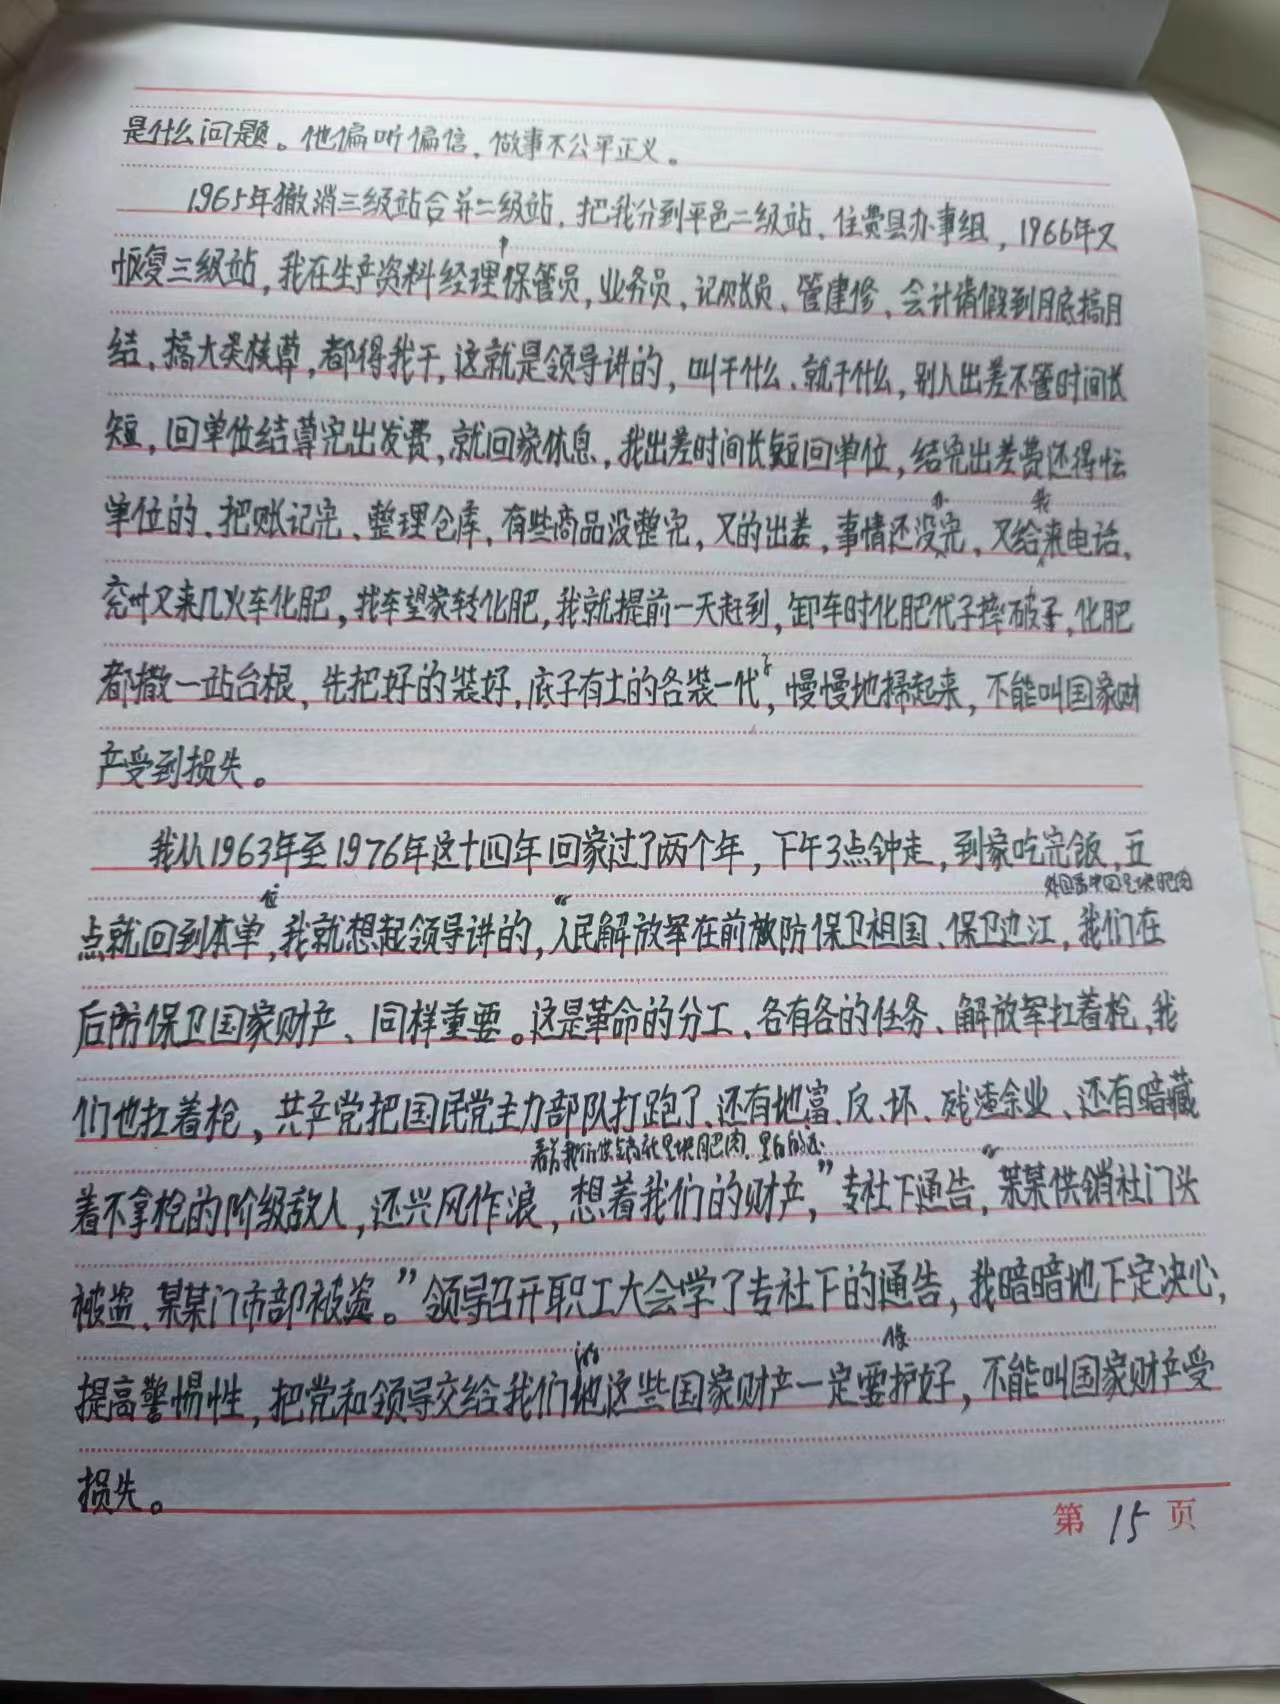 是什么问题。他偏听偏信，做事不公平正义。
1965年撤消三级站合并二级站，把我分到平邑二级站，住费县办事组，1966年又
恢复三级站，我在生产资料经理保管员，业务员、记账员、管建修、会计请假到月底搞月
结，搞大类核算，都得我干，这就是领导讲的，叫干什么、就干什么，别人出差不管时间长
短，回单位结算完出发费，就回家休息，我出差时间长短回单位，结完出差费还得忙
办 我
单位的、把账记完、整理仓库，有些商品没整完，又的出差，事情还没完，又给来电话，
兖州又来几火车化肥，找车望家转化肥，我就提前一天赶到，卸车时化肥代子摔破了，化肥
子
都撒一站台根，先把好的装好，底子有土的各装一代，慢慢地掃起来，不能叫国家财
产受到损失。
我从1963年至1976年这十四年回家过了两个年，下午3点钟走，到家吃完饭，五
位 外国看中国是块肥肉
点就回到本单，我就想起领导讲的，“人民解放军在前放防保卫祖国、保卫边江，我们在
后防保卫国家财产、同样重要。这是革命的分工、各有各的任务、解放军扛着枪，我
们也扛着枪，共产党把国民党主力部队打跑了、还有地富、反、坏、残渣余业、还有暗藏
看着我们供销社是块肥肉，
着不拿枪的阶级敌人，还兴风作浪，想着我们的财产，”专社下通告，“某某供销社门头
被盗、某某门市部被盗。”领导召开职工大会学了专社下的通告，我暗暗地下定决心，
保
提高警惕性，把党和领导交给我们地这些国家财产一定要护好，不能叫国家财产受
损失。
第 15 页